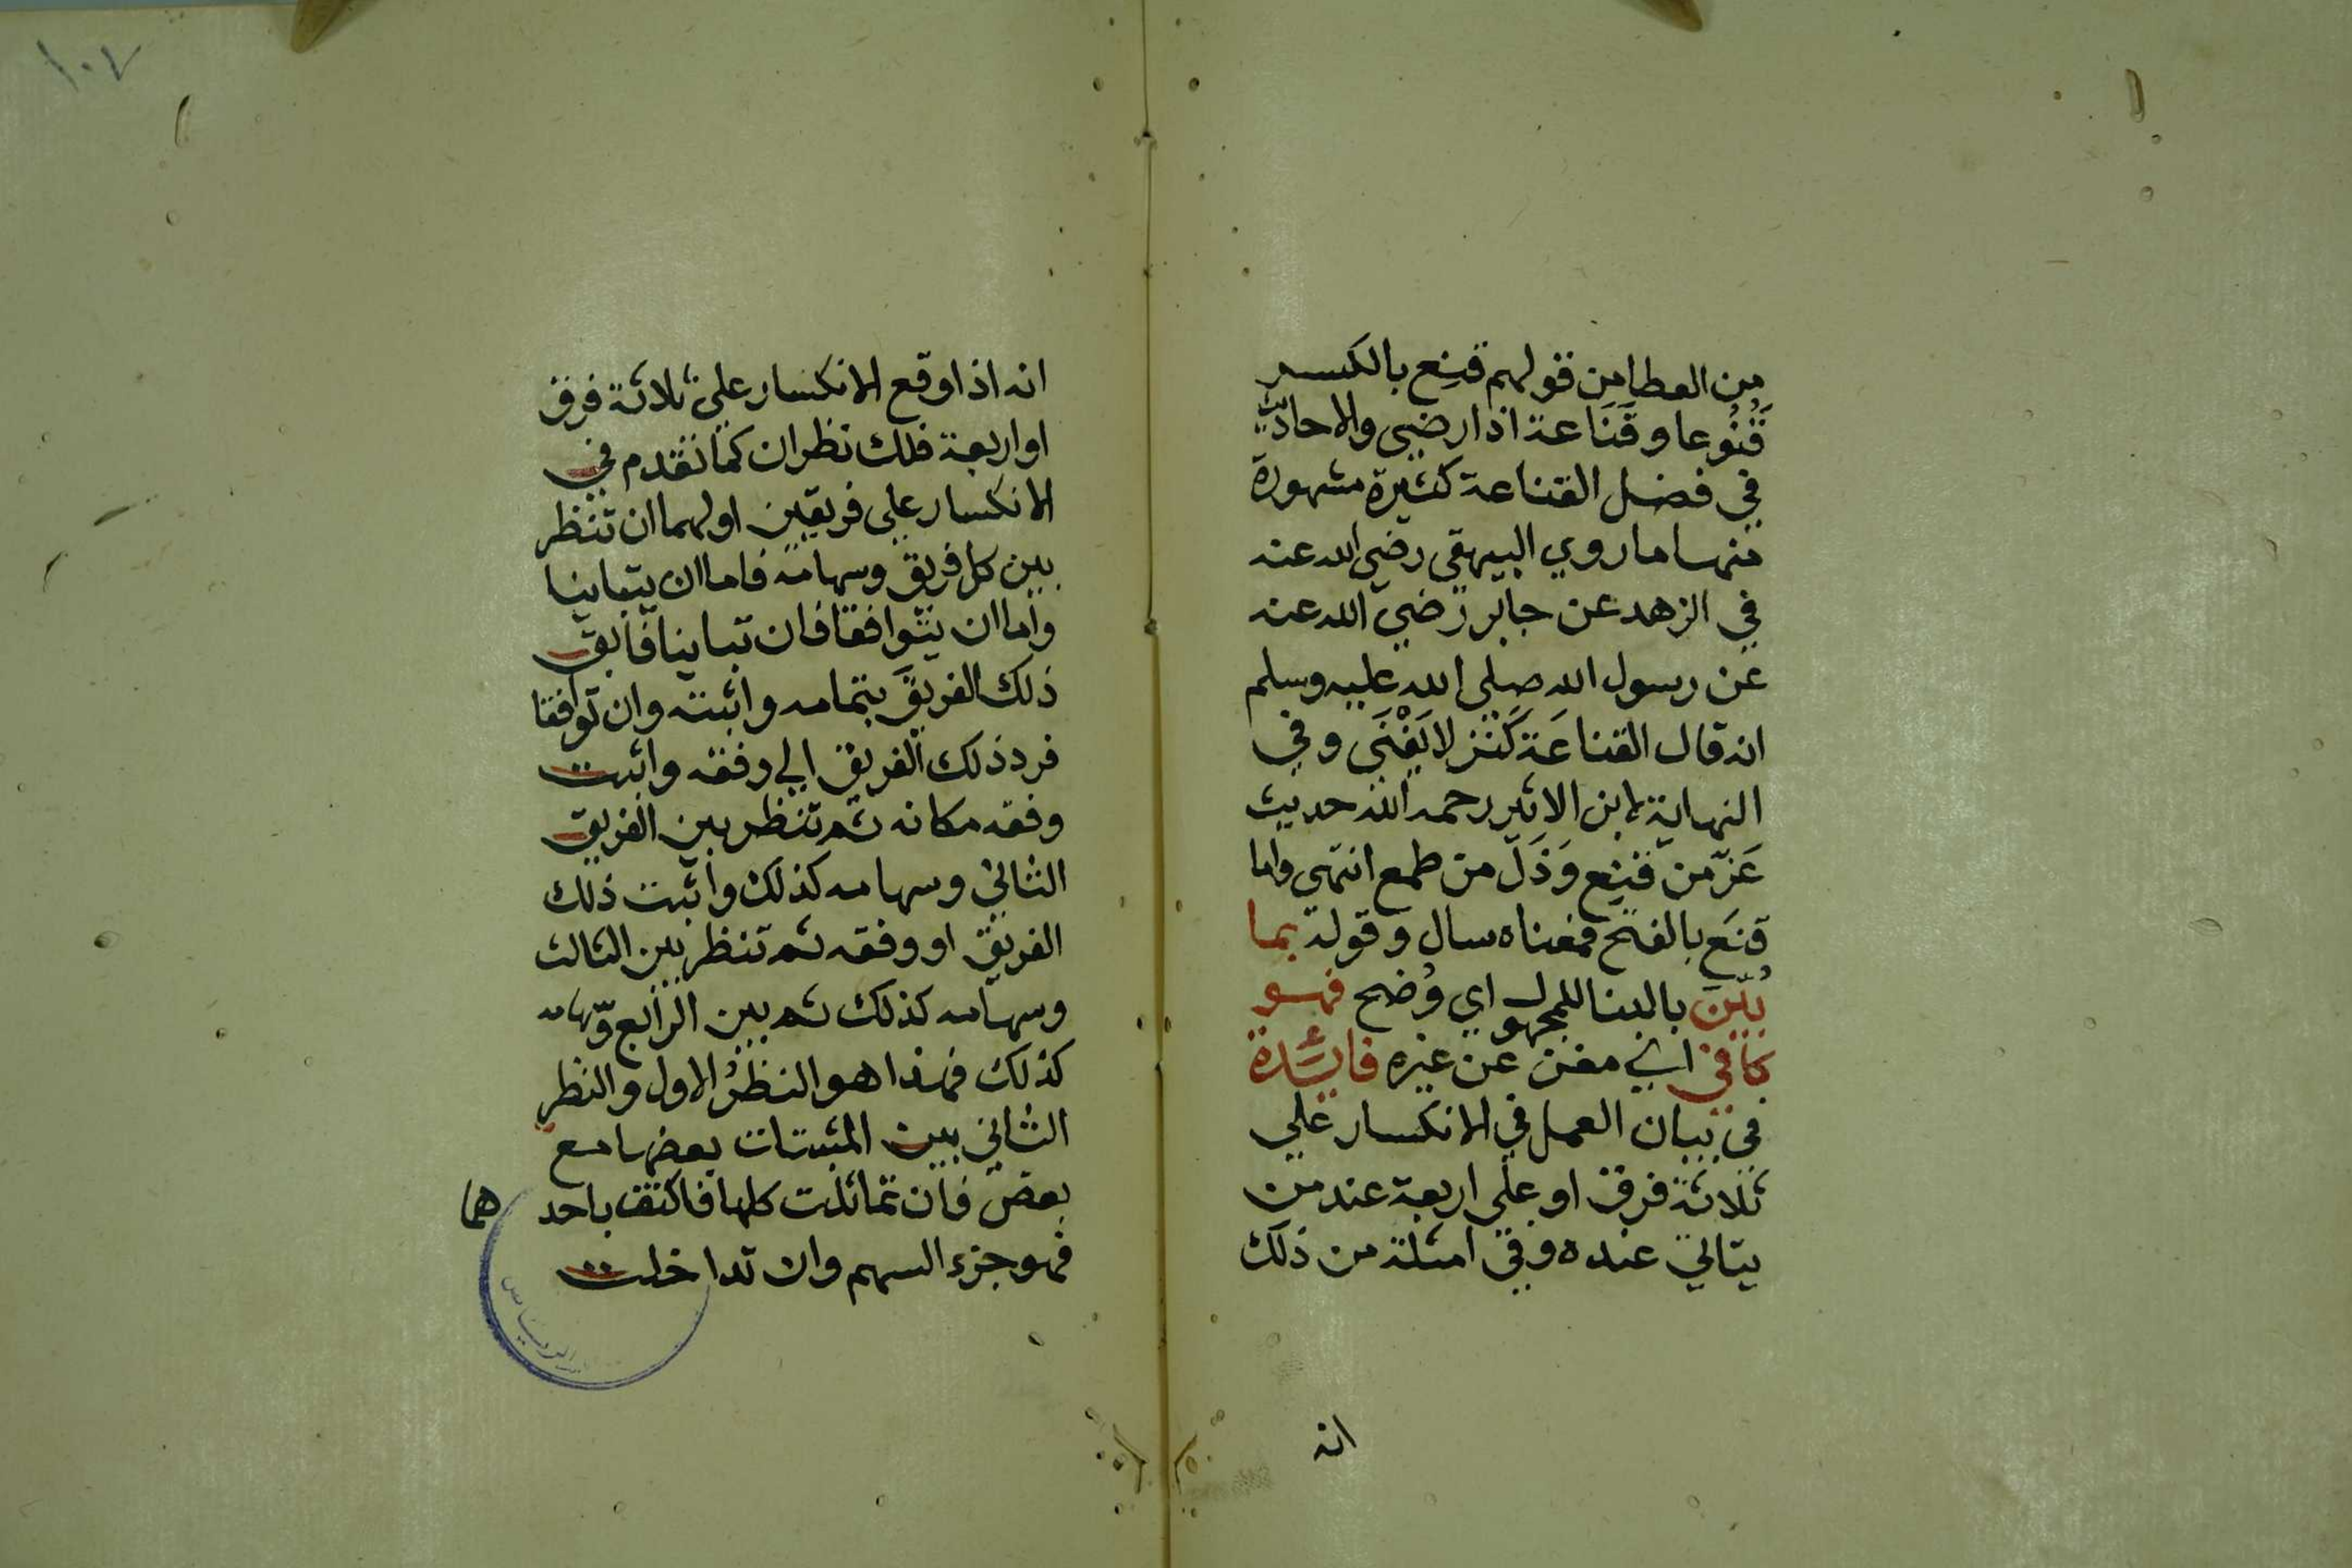 من العطا من قولهم قنِع بالكسر
قُنُوعا وقَنَاعة اذا رضي والاحاديث
في فضل القناعة كثيرة مشهورة
منها ما روي البيهقي رضي الله عنه
في الزهد عن جابر رضي الله عنه
عن رسول الله صلى الله عليه وسلم
انه قال القناعَة كَنز لا يَفْنَى وفي
النهاية لابن الاثير رحمه الله حديث
عَزّ من قنِع وَذَلّ من طمع انتهى واما
قنَع بالفتح فمعناه سال وقوله بما
بُيّنَ بالبنا للمجهول اي وُضح فهو
كافي اي مغن عن غيره فائدة
في بيان العمل في الانكسار علي
ثلاثة فرق او على اربعة عند من
يتاتي عنده وفي امثلة من ذلك
انه
١٠٧
انه اذا وقع الانكسار علي ثلاثة فرق
او اربعة فلك نظران كما تقدم في
الانكسار علي فريقين اولهما ان تنظر
بين كل فريق وسهامه فاما ان يتباينا
واما ان يتوافقا فان تباينا فابق
ذلك الفريقَ بتمامه واثبته وان توافقا
فرد ذلك الفريق الي وفقه واثبت
وفقه مكانه ثم تنظر بين الفريق
الثاني وسهامه كذلك واثبت ذلك
الفريق او وفقه ثم تنظر بين الثالث
وسهامه كذلك ثم بين الرابع وسهامه
كذلك فهذا هو النظرُ الاول والنظر
الثاني بين المثبتات بعضها مع
بعض فان تماثلت كلها فاكتف باحد
هما
فهو جزء السهم وان تداخلت